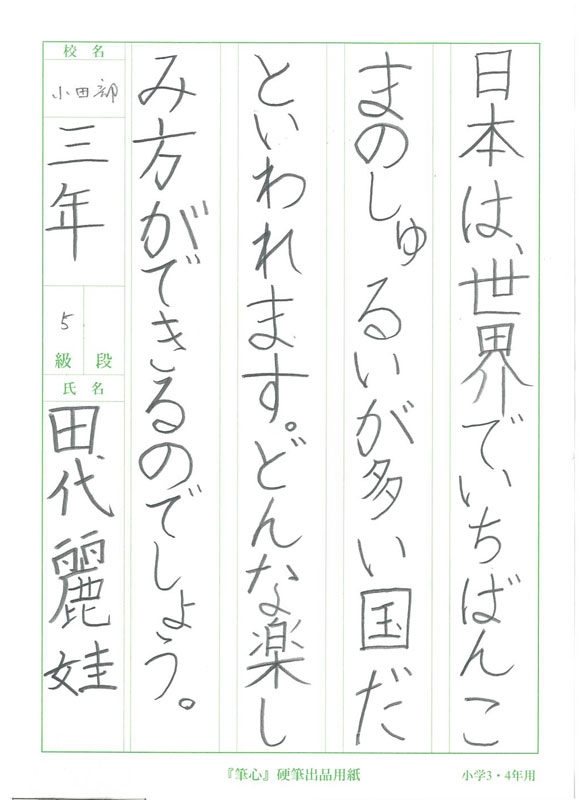 日本は、世界でいちばんこ
まのしゅるいが多い国だ
といわれます。どんな楽し
み方ができるのでしょう。
校名
小田部
三年
5
級 段
氏名
田代麗娃
『筆心』硬筆出品用紙
小学3・4年用